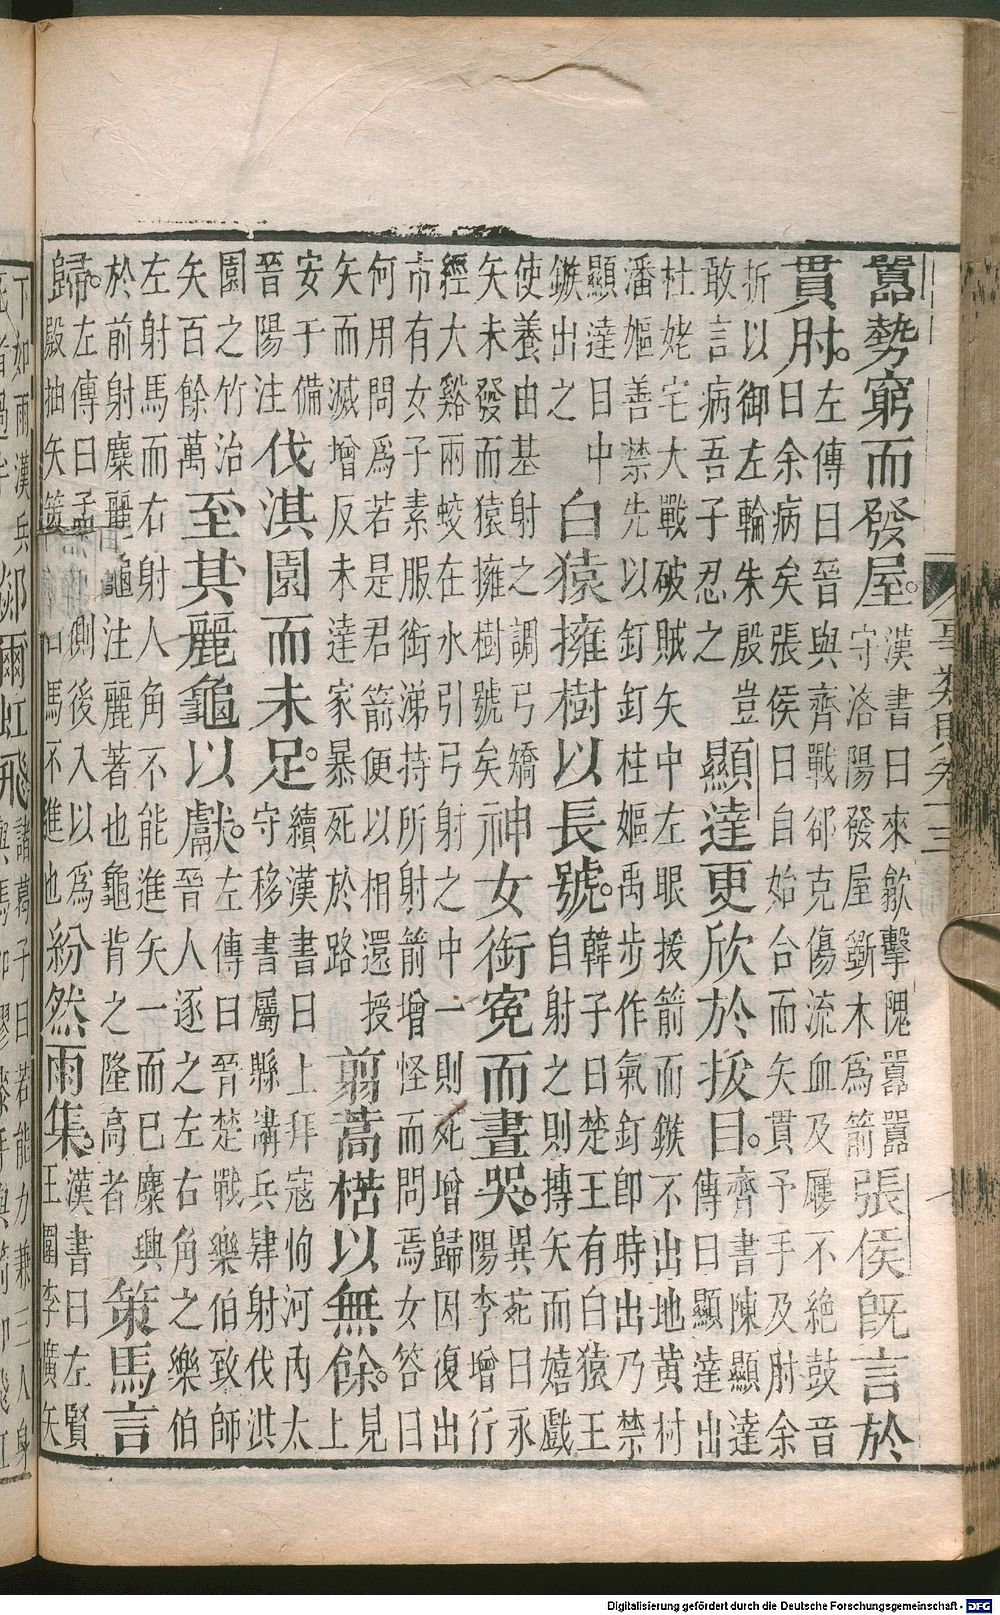 囂勢窮而發屋。
漢書曰來歙擊隗囂囂
守洛陽發屋斷木為箭
張侯既言於
貫肘。
左傳曰晉與齊戰郤克傷流血及屨不絕鼓音
曰余病矣張侯曰自始合而矢貫予手及肘余
折以御左輪朱殷豈
敢言病吾子忍之
顯達更欣於拔目。
齊書陳顯達
傳曰顯達出
杜姥宅大戰破賊矢中左眼拔箭而鏃不出地黃村
潘嫗善禁先以釘釘柱嫗禹步作氣釘即時出乃禁
顯達目中
鏃出之
白猿擁樹以長號。
韓子曰楚王有白猿王
自射之則搏矢而嬉戲
使養由基射之調弓矯
矢未發而猿擁樹號矣
神女銜寃而晝哭。
異苑曰永
陽李增行
經大谿兩蛟在水引弓射之中一則死增歸因復出
市有女子素服銜涕持所射箭增怪而問焉女答曰
何用問為若是君箭便以相還授
矢而滅增反未達家暴死於路
翦蒿楛以無餘。
見
上
安于備
晉陽注
伐淇園而未足。
續漢書曰上拜寇恂河內太
守移書屬縣講兵肄射伐洪
園之竹治
矢百餘萬
至其麗龜以獻。
左傳曰晉楚戰樂伯致師
晉人逐之左右角之樂伯
左射馬而右射人角不能進矢一而已麋興
於前射麋麗龜注麗著也龜背之隆高者
策馬言
歸。
左傳曰孟側後入以為
殿抽矢策曰馬不進也
紛然雨集。
漢書曰左賢
王圍李廣矢
下如雨漢兵
爾虹飛
諸葛子曰若能力兼三人身
事類賦卷十三
Digitalisierung gefördert durch die Deutsche Forschungsgemeinschaft - DFG